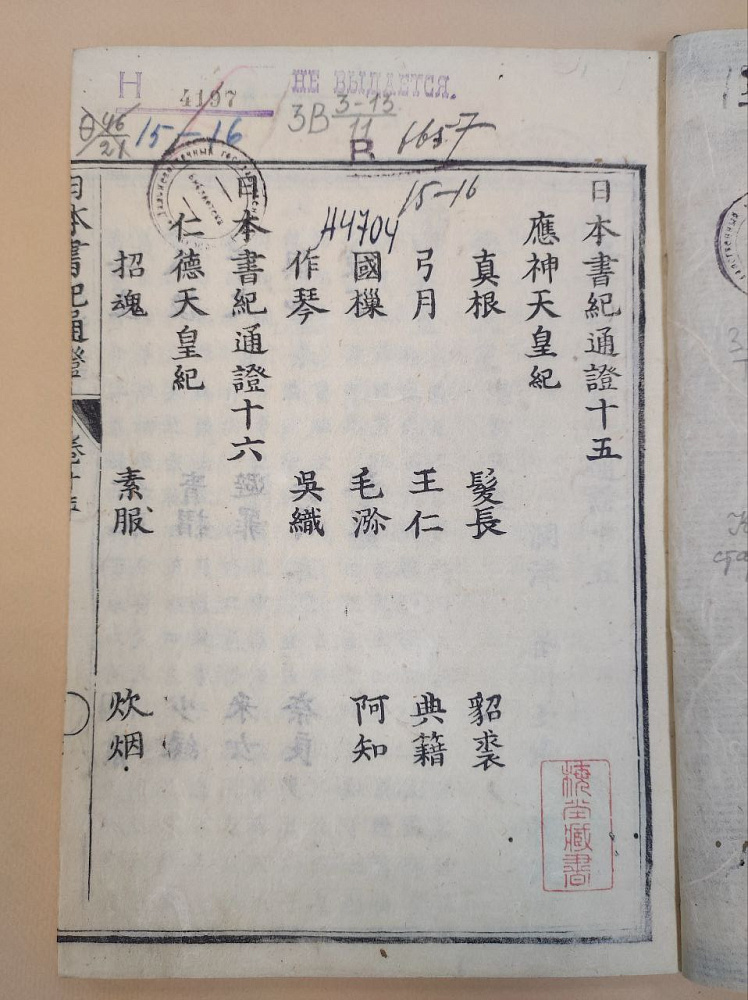 Н 4197 НЕ ВЫДАЕТСЯ.
15-16
3В 3-13/11
R
1657
15-16
H4704
日本書紀通證十五
應神天皇紀
真根 髮長 貂裘
弓月 王仁 典籍
國樔 毛㴞 阿知
作琴 吳織
日本書紀通證十六
仁德天皇紀
招魂 素服 炊烟
日本書紀通證 卷十五
梅堂臧書